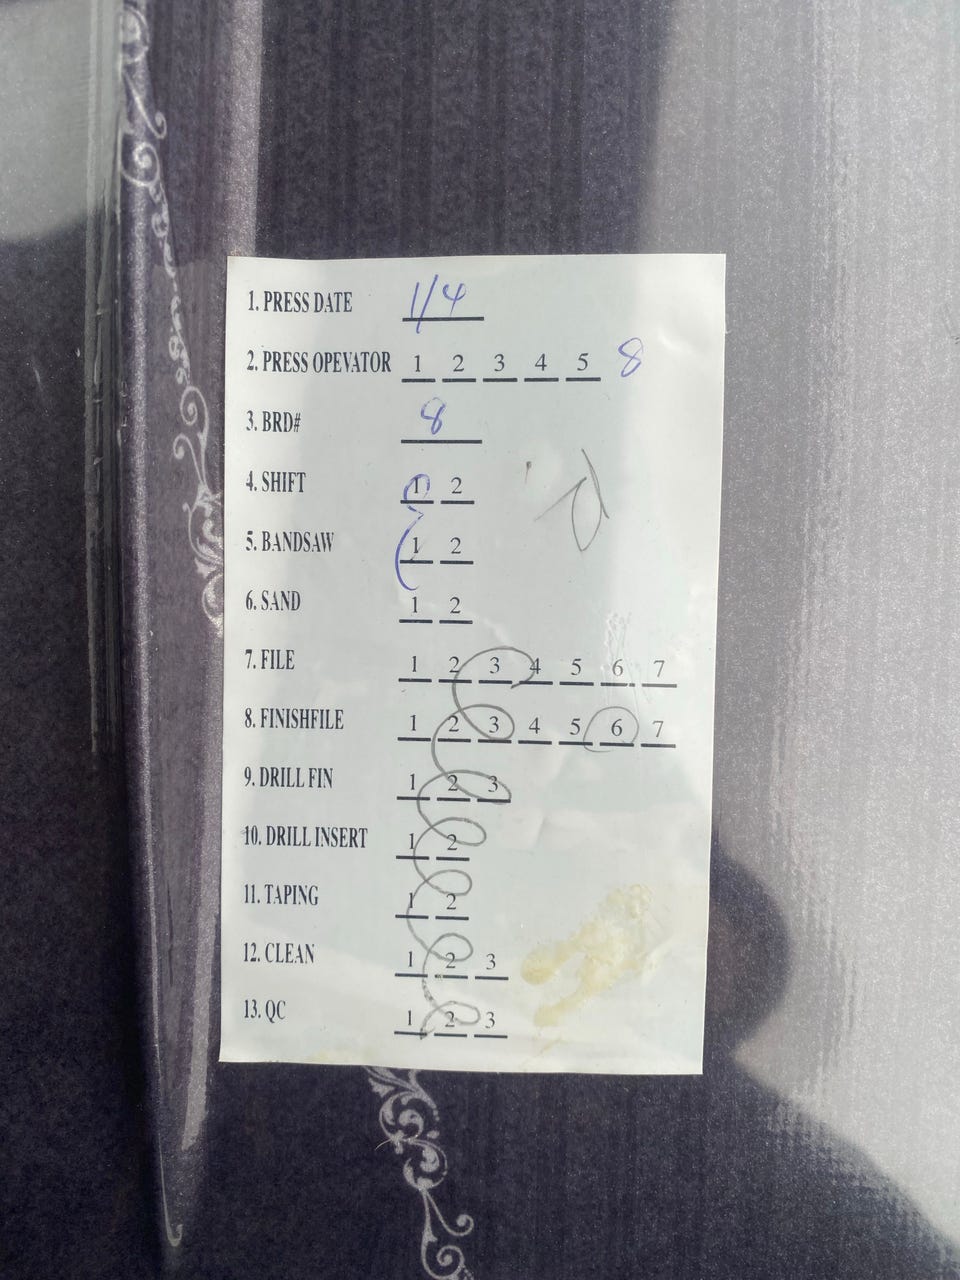 1. PRESS DATE 1/4
2. PRESS OPEVATOR 1 2 3 4 5 8
3. BRD# 8
4. SHIFT 1 2
5. BANDSAW 1 2
6. SAND 1 2
7. FILE 1 2 3 4 5 6 7
8. FINISHFILE 1 2 3 4 5 6 7
9. DRILL FIN 1 2 3
10. DRILL INSERT 1 2
11. TAPING 1 2
12. CLEAN 1 2 3
13. QC 1 2 3